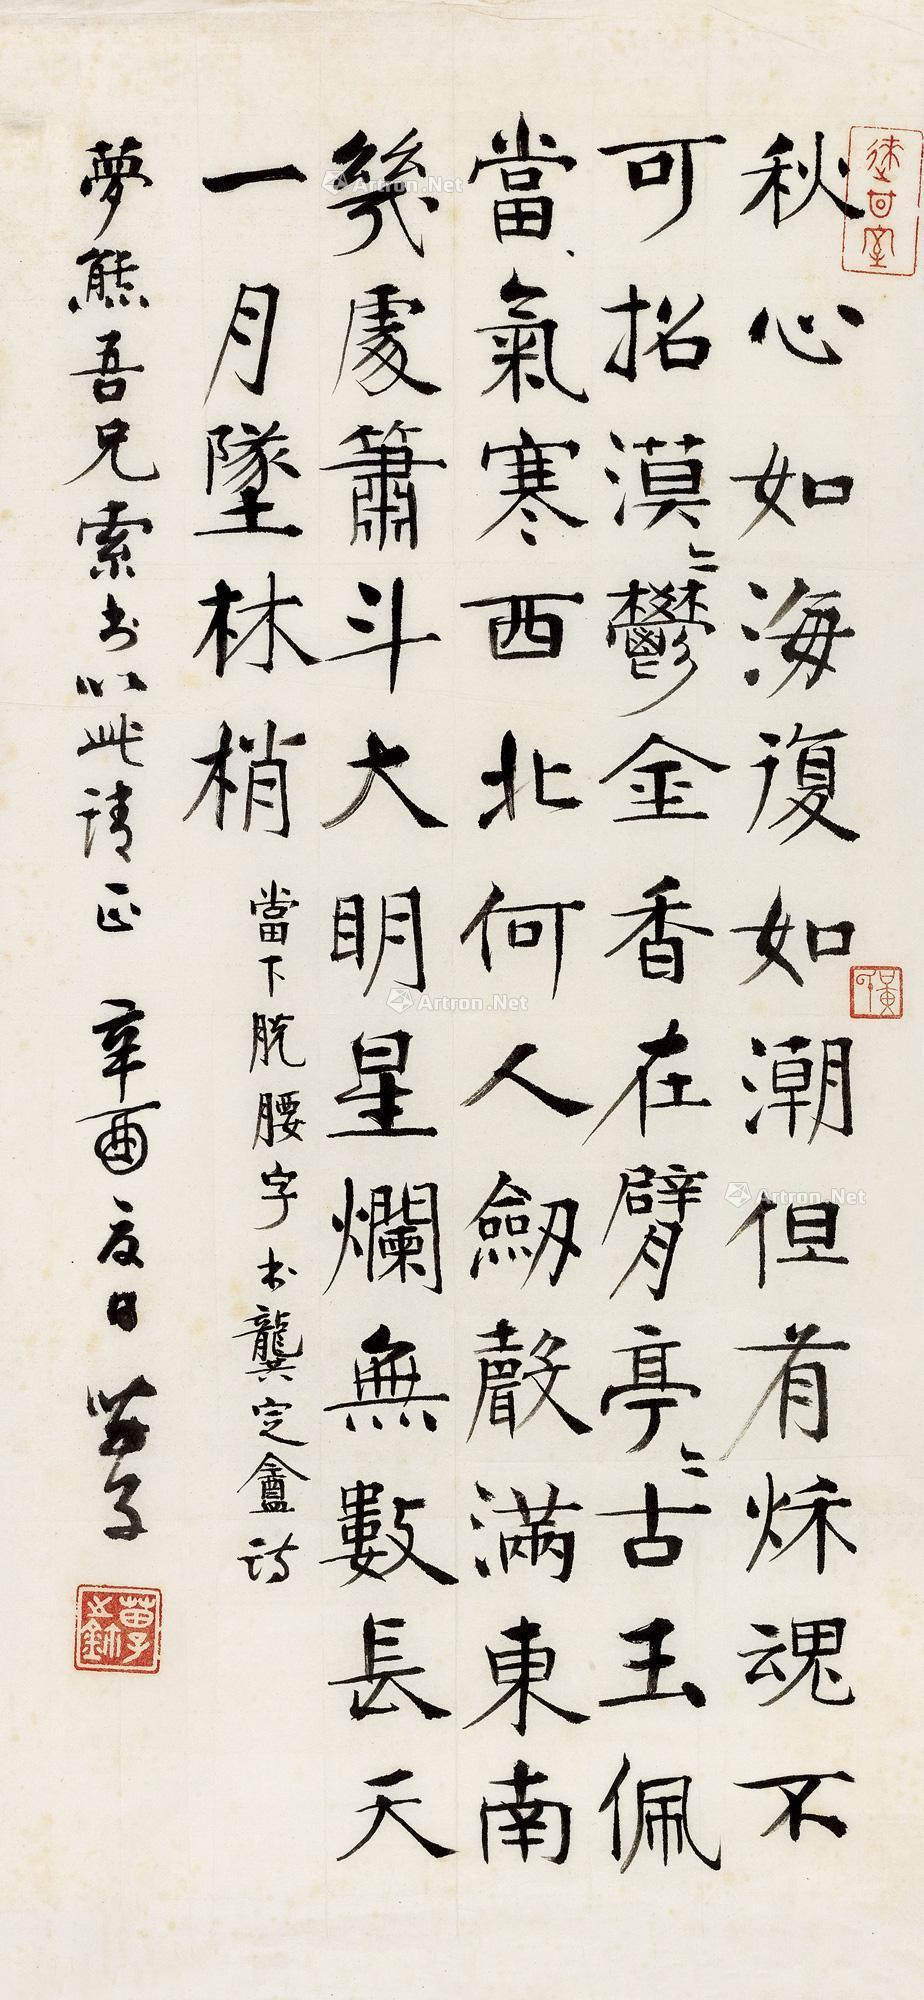 秋心如海復如潮但有秌魂不
可招漠〻鬱金香在臂亭〻古玉佩
當、氣寒西北何人劒聲滿東南
幾處簫斗大明星爛無數長天
一月墜林梢
當下脫腰字 书龔定盦詩
夢熊吾兄索书以此請正 辛酉夏日 苗子
苗子
黃
Artron.Net
Artron.Net
Artron.Net